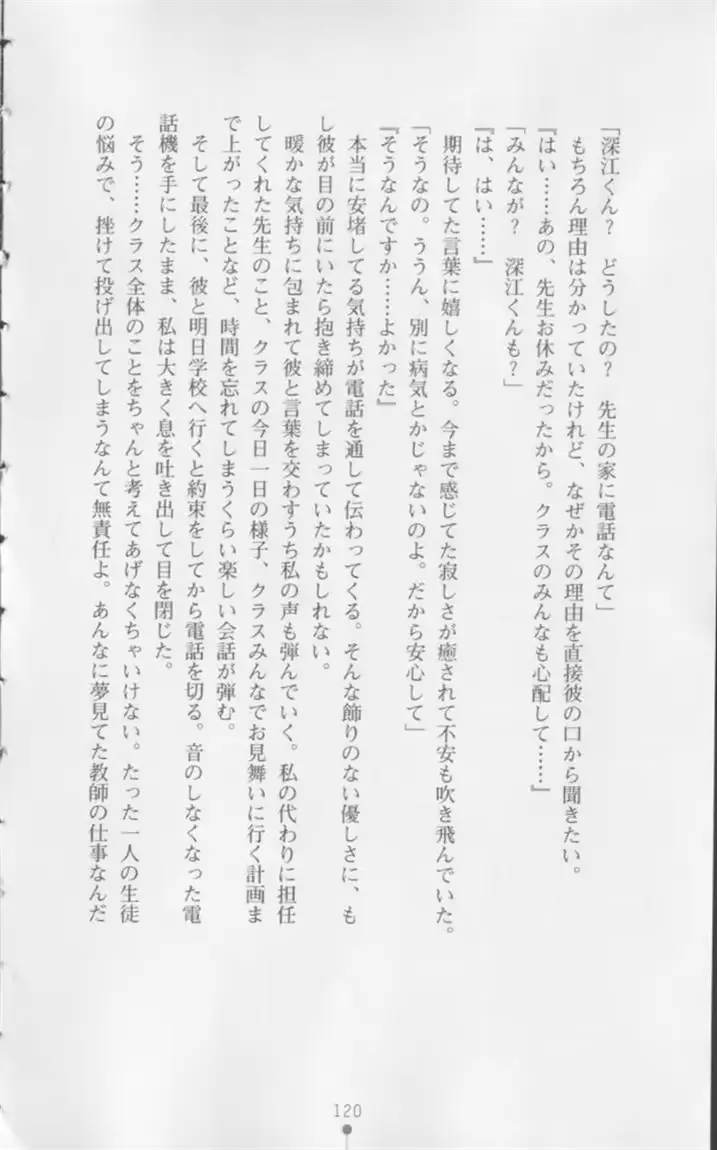 「深江くん？　どうしたの？　先生の家に電話なんて」
もちろん理由は分かっていたけれど、なぜかその理由を直接彼の口から聞きたい。
『はい……あの、先生お休みだったから。クラスのみんなも心配して……』
「みんなが？　深江くんも？」
『は、はい……』
期待してた言葉に嬉しくなる。今まで感じてた寂しさが癒されて不安も吹き飛んでいた。
「そうなの。ううん、別に病気とかじゃないのよ。だから安心して」
『そうなんですか……よかった』
本当に安堵してる気持ちが電話を通して伝わってくる。そんな飾りのない優しさに、も
し彼が目の前にいたら抱き締めてしまっていたかもしれない。
暖かな気持ちに包まれて彼と言葉を交わすうち私の声も弾んでいく。私の代わりに担任
してくれた先生のこと、クラスの今日一日の様子、クラスみんなでお見舞いに行く計画ま
で上がったことなど、時間を忘れてしまうくらい楽しい会話が弾む。
そして最後に、彼と明日学校へ行くと約束をしてから電話を切る。音のしなくなった電
話機を手にしたまま、私は大きく息を吐き出して目を閉じた。
そう……クラス全体のことをちゃんと考えてあげなくちゃいけない。たった一人の生徒
の悩みで、挫けて投げ出してしまうなんて無責任よ。あんなに夢見てた教師の仕事なんだ
120